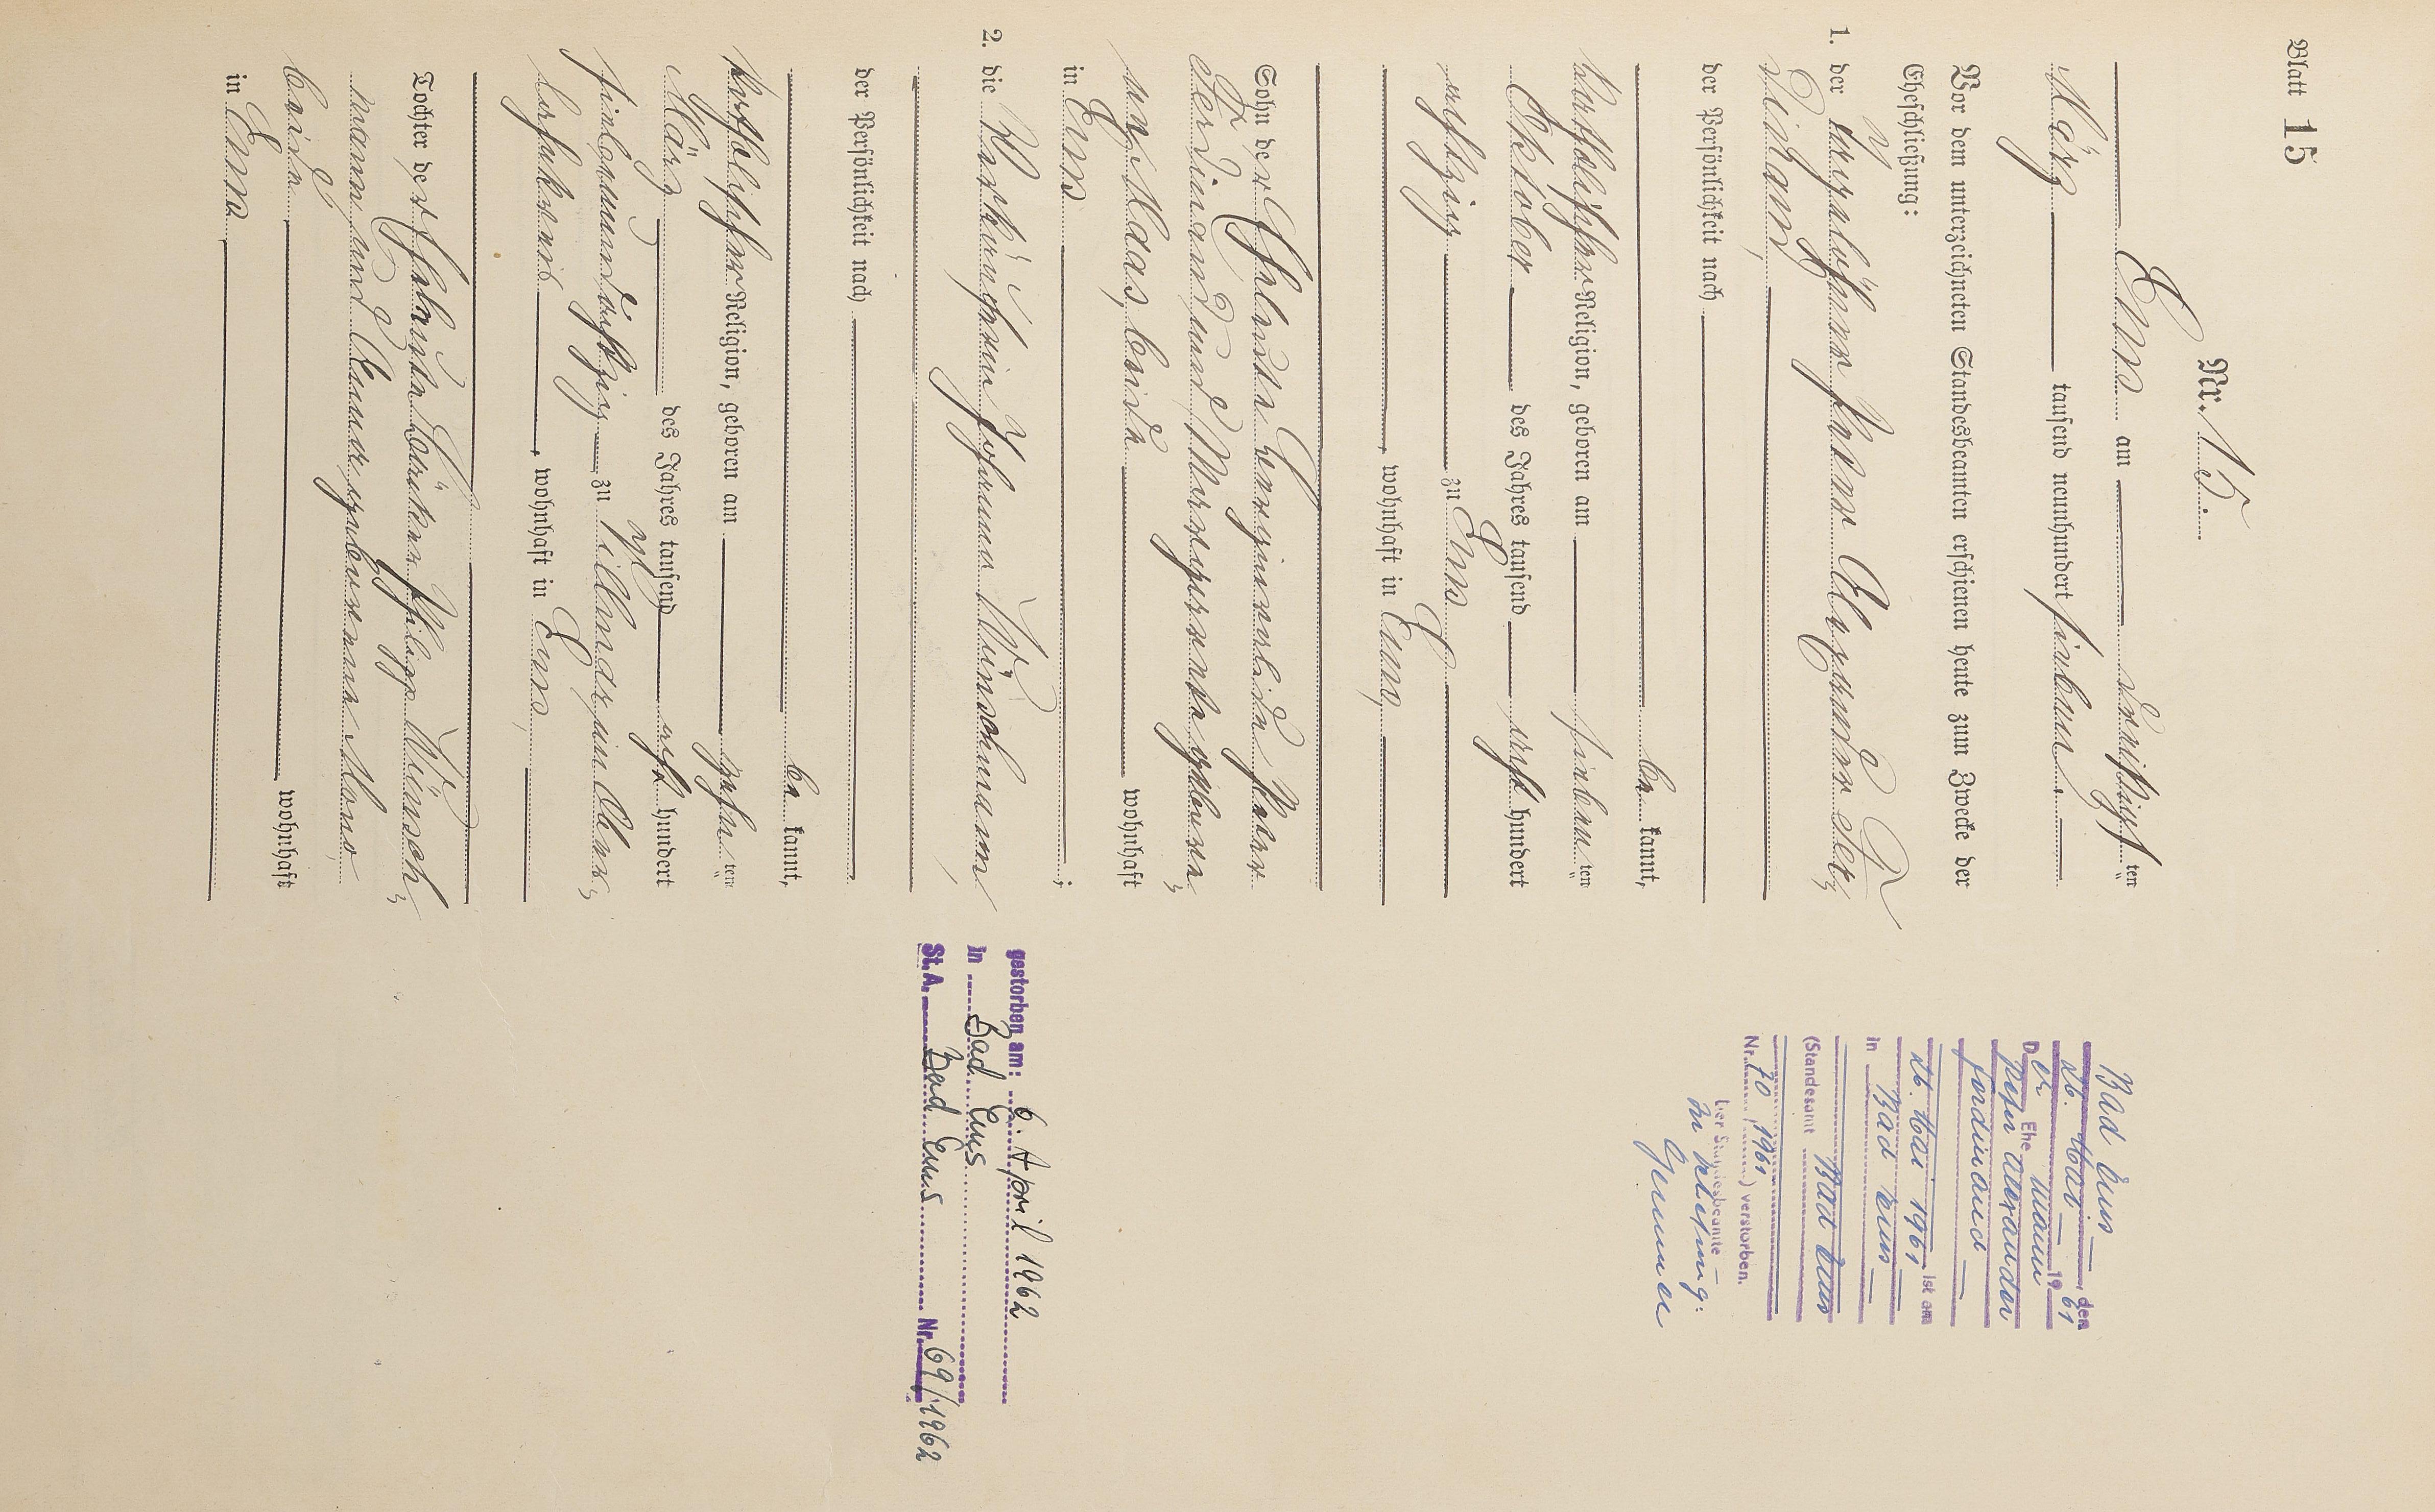 Blatt 15
Nr. 15.
Ems am dreißigsten
März tausend neunhundert sieben.
Vor dem unterzeichneten Standesbeamten erschienen heute zum Zwecke der
Eheschließung:
1. der Tagelöhner Peter Alexander Fer=
dinand,
der Persönlichkeit nach
be kannt,
katholischer Religion, geboren am siebenten
Oktober des Jahres tausend acht hundert
achtzig zu Ems
, wohnhaft in Ems,
Sohn der Eheleute Berginvalide Peter
Ferdinand und Margaretha gebore=
nen Maas, beide wohnhaft
in Ems ;
2. die Verkäuferin Johanna Wünschmann,
der Persönlichkeit nach
be kannt,
katholischer Religion, geboren am zehnten
März des Jahres tausend acht hundert
siebenundachtzig zu Villmar, im Ober=
lahnkreis, wohnhaft in Ems,
Tochter der Eheleute Bäcker Philipp Wünsch=
mann und Anna geborenen
beide wohnhaft
in Ems
Bad Ems, den
26. Mai 1961
Der Ehemann
Peter Alexander
Ferdinand
26. Mai 1961 ist am
in Bad Ems
(Standesamt Bad Ems
Nr. 70/1961) verstorben.
Der Standesbeamte
In Vertretung:
gestorben am: 6. April 1962
in Bad Ems
St.A. Bad Ems Nr. 69/1962